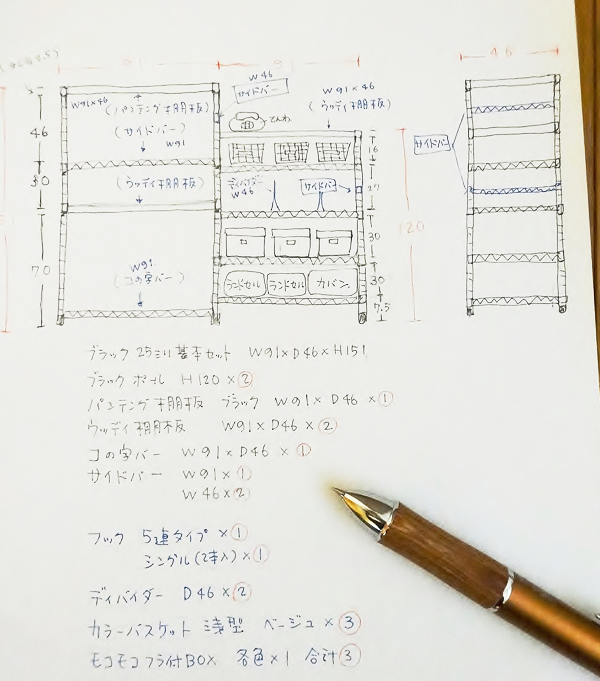 91
91
46
W46
サイドバー
W91×46
(ウッディ棚板)
W91×46
(パンチング棚板)
(サイドバー)
W91
でんわ
46
16
サイドバー
ディバイダー
W46
サイドバー
27
30
(ウッディ棚板)
120
30
70
W91
(コの字バー)
ランドセル
ランドセル
カバン
30
7.5
ブラック 25ミリ基本セット W91×D46×H151
ブラックポール H120×②
パンチング棚板 ブラック W91×D46×①
ウッディ棚板 W91×D46×②
コの字バー W91×D46×①
サイドバー W91×①
W46×②
フック 5連タイプ×①
シングル(2本入)×①
ディバイダー D46×②
カラーバスケット 浅型 ベージュ×③
モコモコフタ付BOX 各色×1 合計③